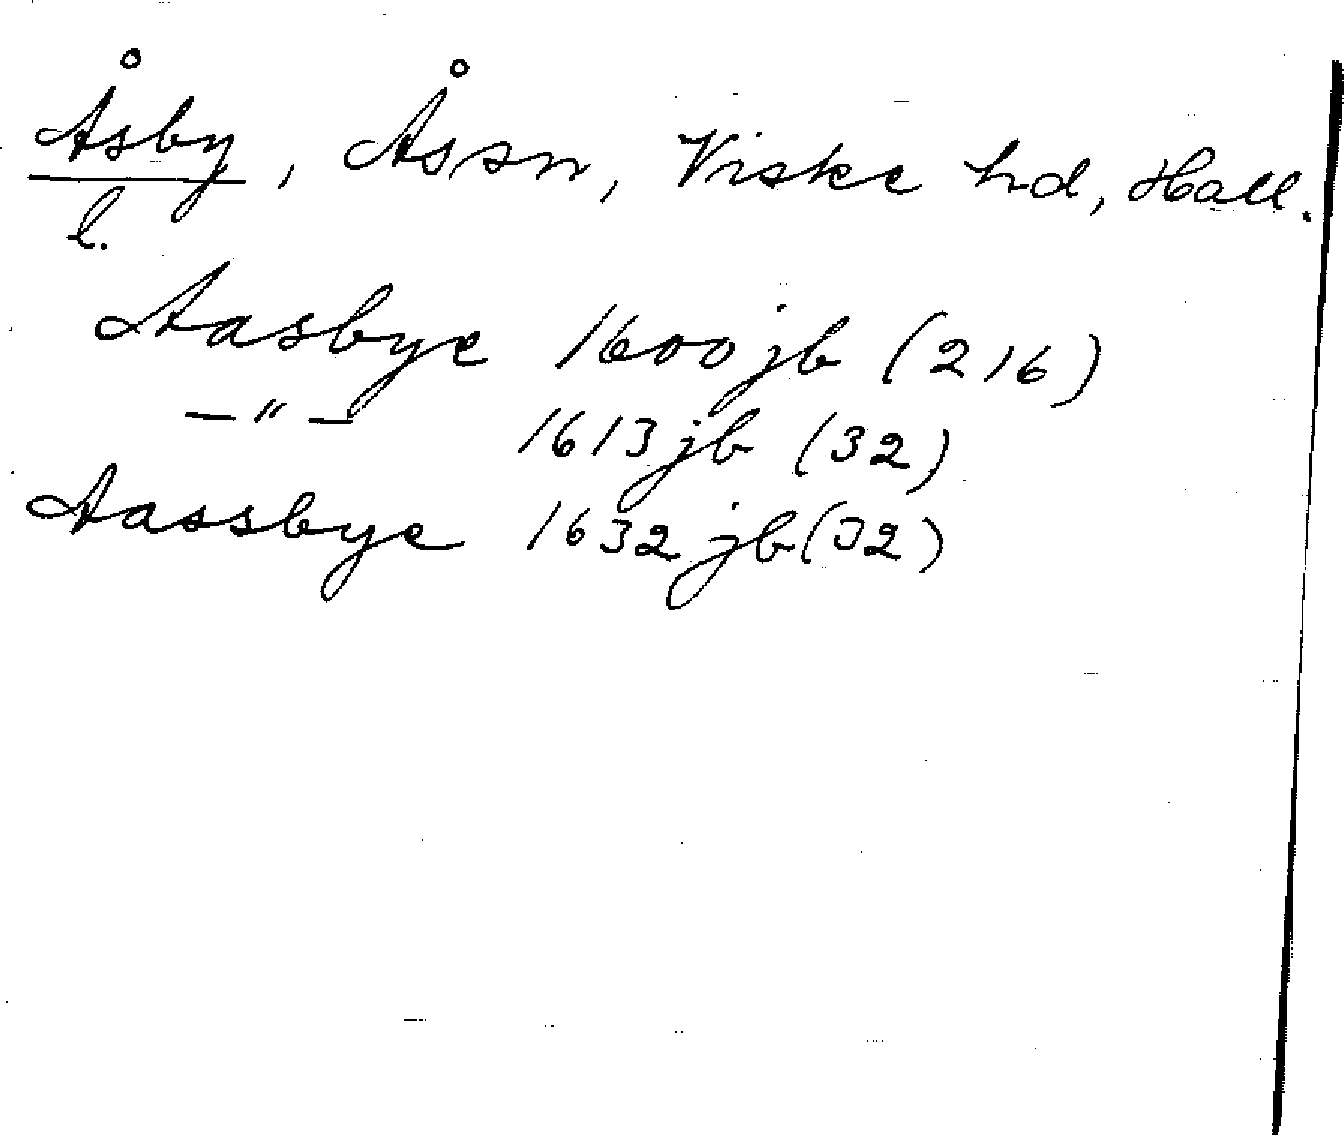 Åsby, Ås sn, Viske hd, Hall.
l.
Aasbye 1600 jb (216)
—"— 1613 jb (32)
Aassbye 1632 jb (32)